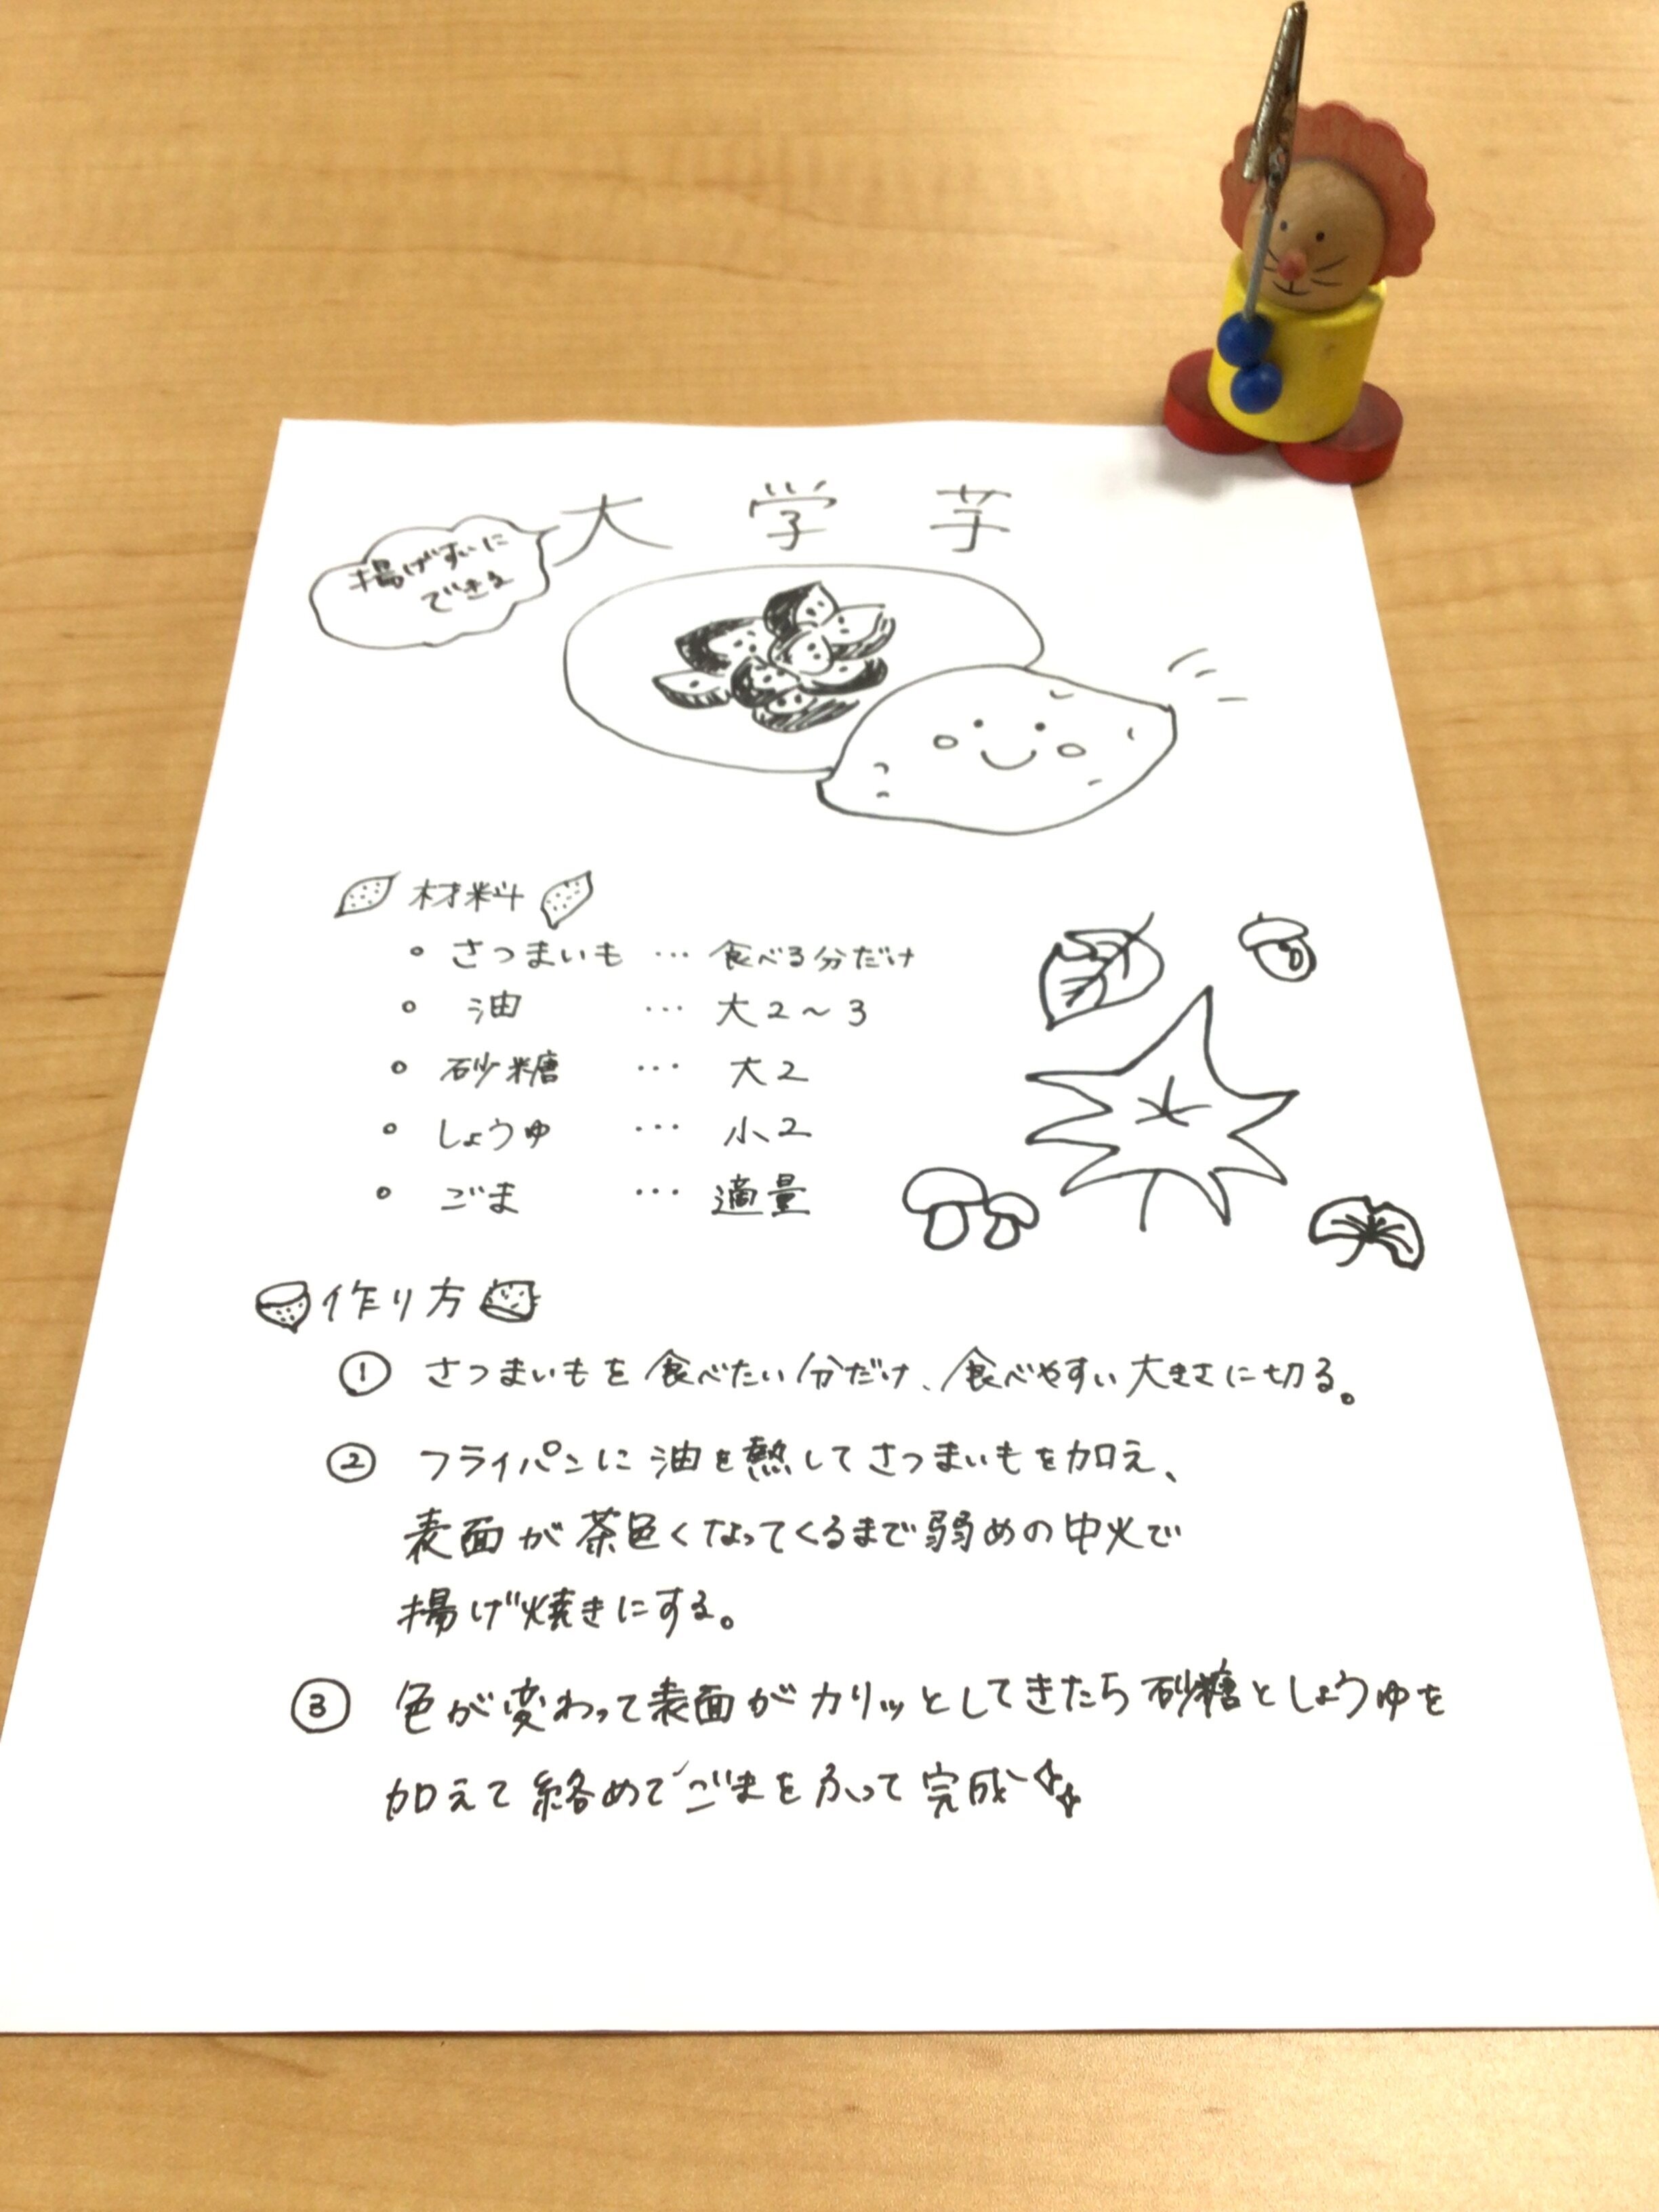 大学芋
揚げずに
できる
材料
・さつまいも … 食べる分だけ
・油 … 大2〜3
・砂糖 … 大2
・しょうゆ … 小2
・ごま … 適量
作り方
① さつまいもを食べたい分だけ、食べやすい大きさに切る。
② フライパンに油を熱してさつまいもを加え、
表面が茶色くなってくるまで弱めの中火で
揚げ焼きにする。
③ 色が変わって表面がカリッとしてきたら砂糖としょうゆを
加えて絡めてごまをふって完成